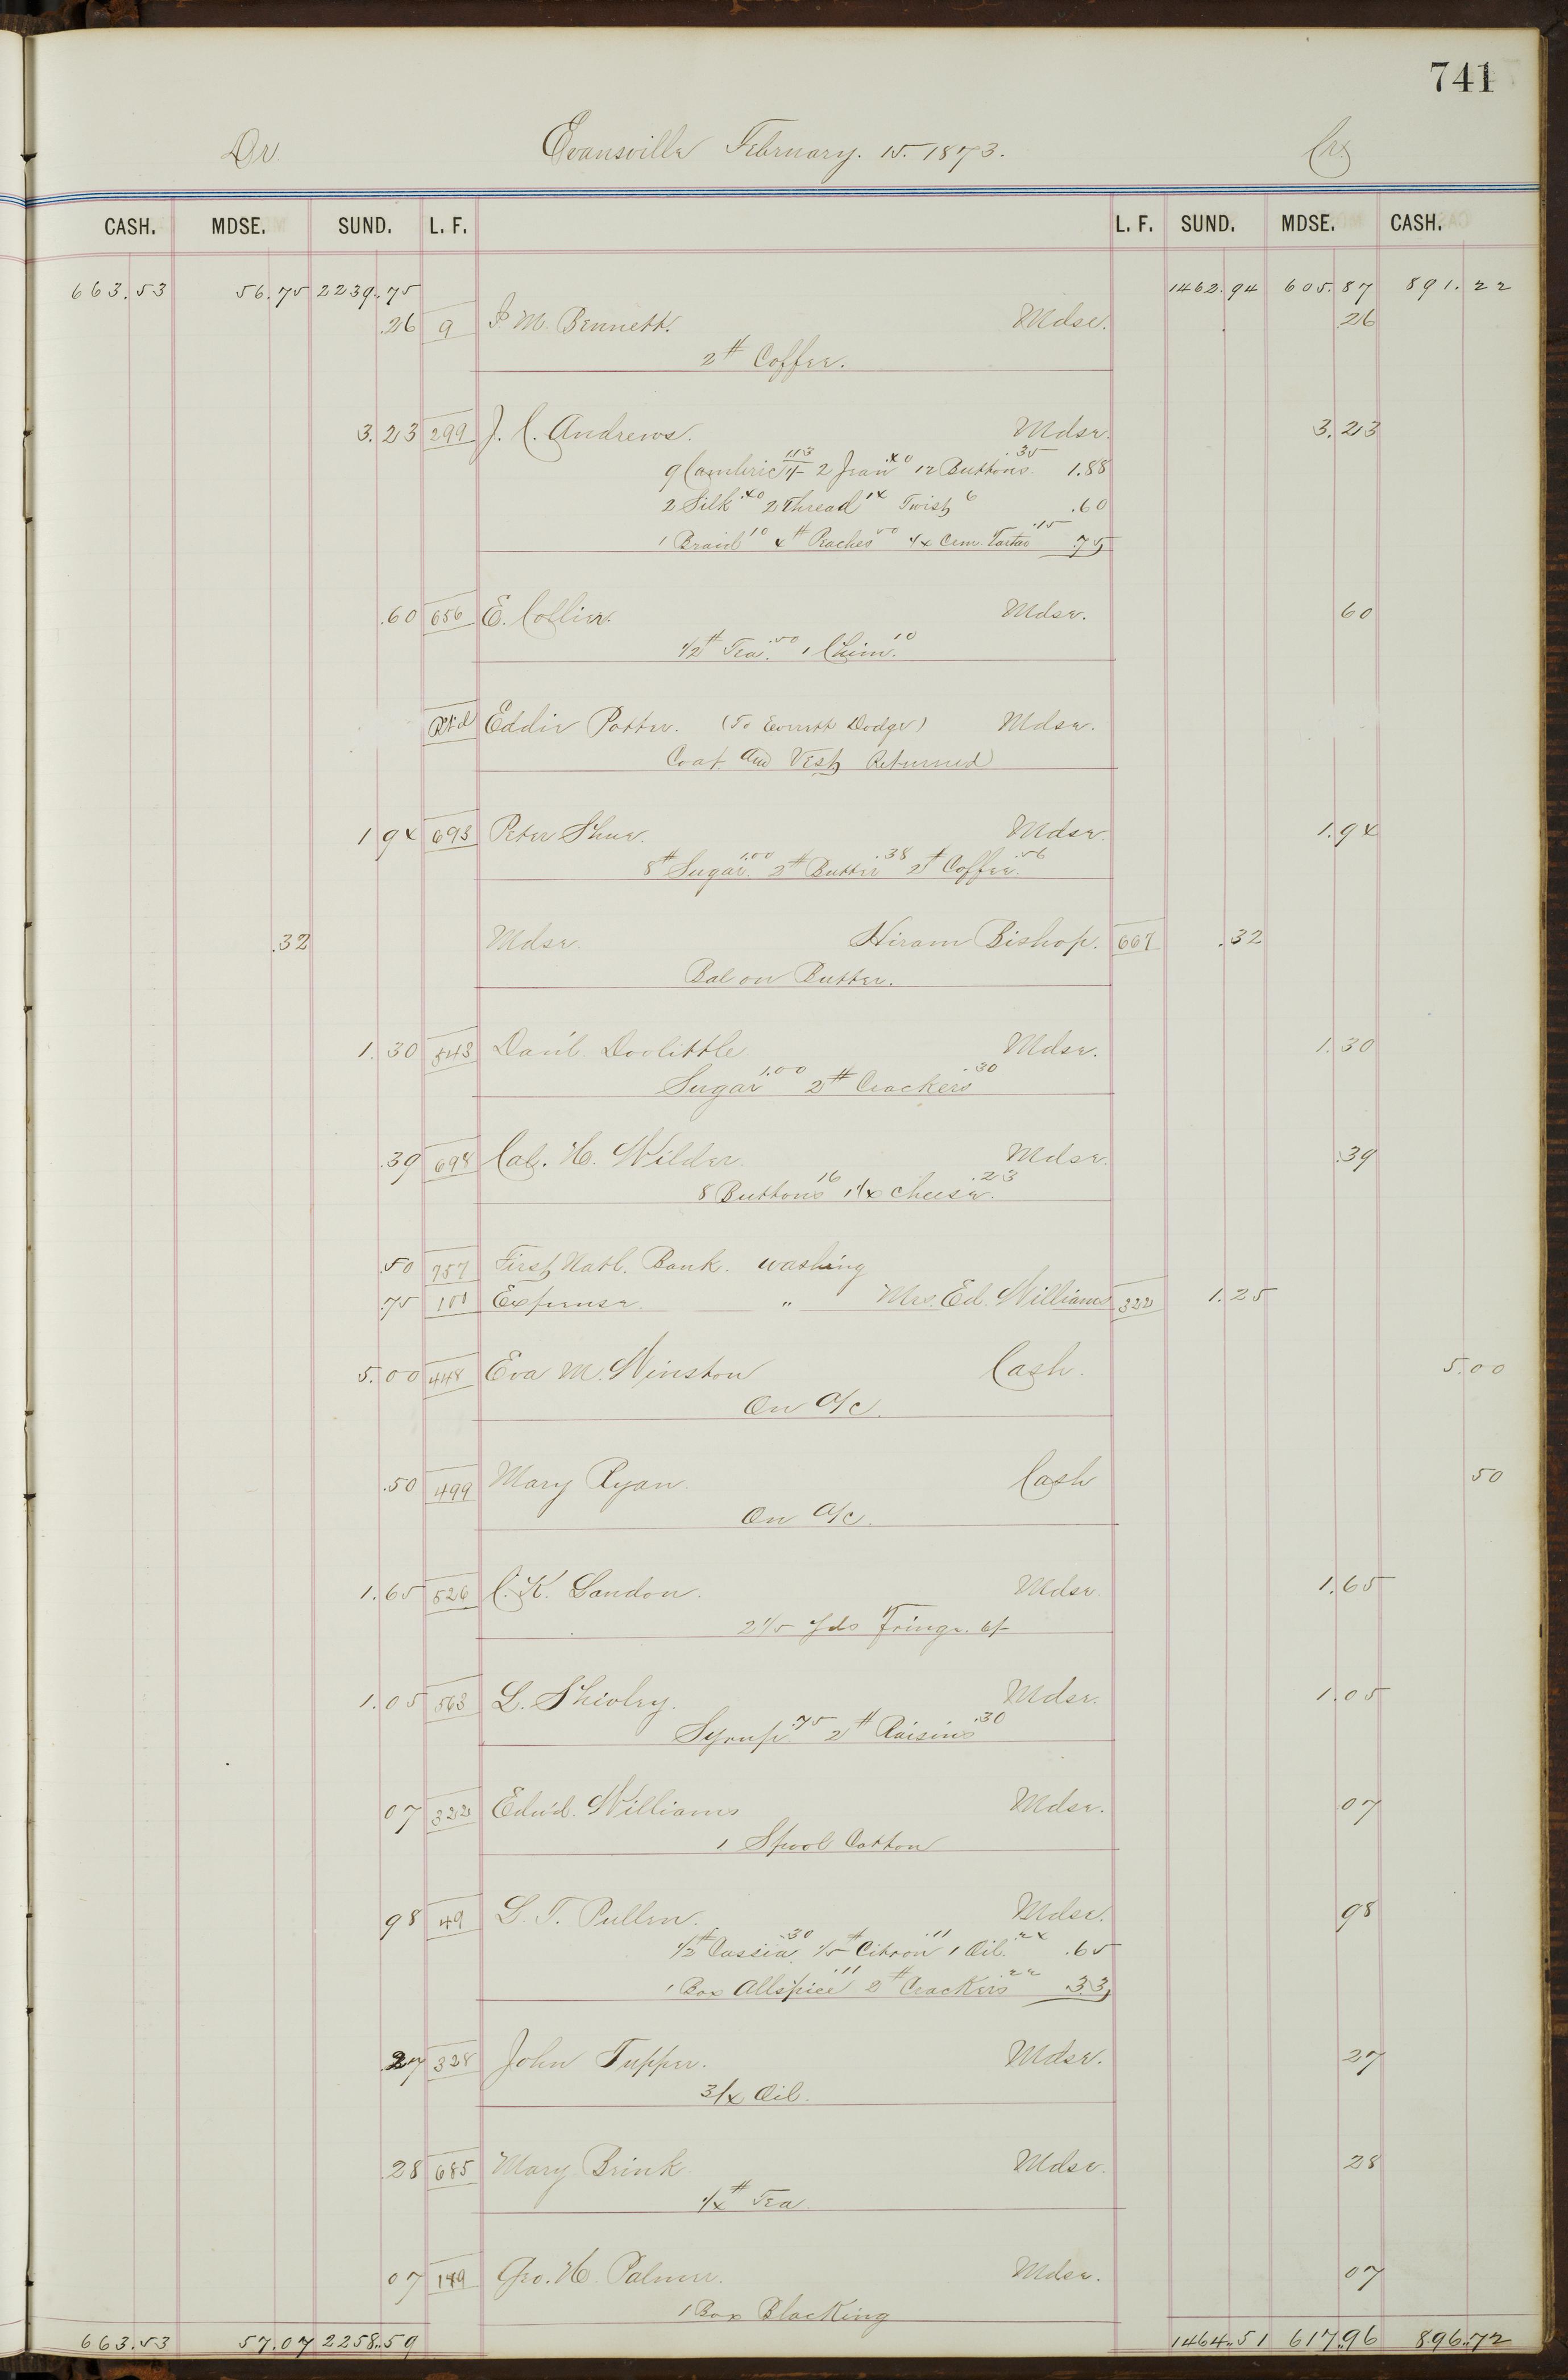 741
Dr. Evansville February. 15. 1873. Cr.
CASH. MDSE. SUND. L. F. L. F. SUND. MDSE. CASH.
663.53 56.75 2239.75 1462.94 605.87 891.22
.26 9 M. Bennett. Mdse. .26
2# Coffee.
3.23 299 J. C. Andrews. Mdse. 3.23
9 Cambric 1/- 1.13 2 Jean .40 12 Buttons .35 1.88
2 Silk .40 2 Thread 14 Twist 6 .60
1 Braid 10 4# Peaches 50 1/4 Crm. Tartar .15 .75
.60 656 E. Collier. Mdse. 60
1/2# Tea .50 1 Chim. 10
Rt'd Eddie Potter. (To Everett Dodge) Mdse.
Coat and Vest Returned
1 94 693 Peter Shue. Mdse. 1.94
8# Sugar 1.00 2# Butter .38 2# Coffee .56
.32 Mdse. Hiram Bishop. 667 .32
Bal on Butter.
1.30 543 Dan'l Doolittle Mdse. 1.30
Sugar 1.00 2# Crackers .30
.39 698 Cal. H. Wilder. Mdse. .39
8 Buttons 16 1 1/4 Cheese .23
.50 757 First Natl. Bank. washing
.75 101 Expense. " Mrs. Ed. Williams 322 1.25
5.00 448 Eva M. Winston Cash. 5.00
On A/c.
.50 499 Mary Ryan. Cash 50
On A/c.
1.65 526 C. K. Landon. Mdse. 1.65
2 1/5 Yds Fringe. 6/-
1.05 563 L. Shivley. Mdse. 1.05
Syrup .75 2# Raisins .30
07 322 Edw'd. Williams Mdse. 07
1 Spool Cotton
98 49 L. T. Pullen. Mdse. 98
1/2# Cassia .30 1/5# Citron .11 1 Oil .24 .65
1 Box Allspice .11 2# Crackers .22 33
.27 328 John Tupper. Mdse. 27
3/4 Oil.
.28 685 Mary Brink Mdse. 28
1/4# Tea.
07 149 Geo. H. Palmer. Mdse. 07
1 Box Blacking
663.53 57.07 2258.59 1464.51 617.96 896.72